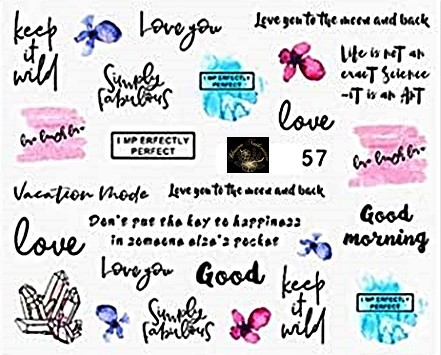 keep
it
wild
Love you
Love you to the moon and back
Simply
fabulous
I MPERFECTLY
PERFECT
Life is not an
exact Science
-it is an Art
love
I MPERFECTLY
PERFECT
57
Vacation Mode
Love you to the moon and back
Good
morning
Don't put the key to happiness
in someone else's pocket
love
Love you
Good
keep
it
wild
Simply
fabulous
I MPERFECTLY
PERFECT